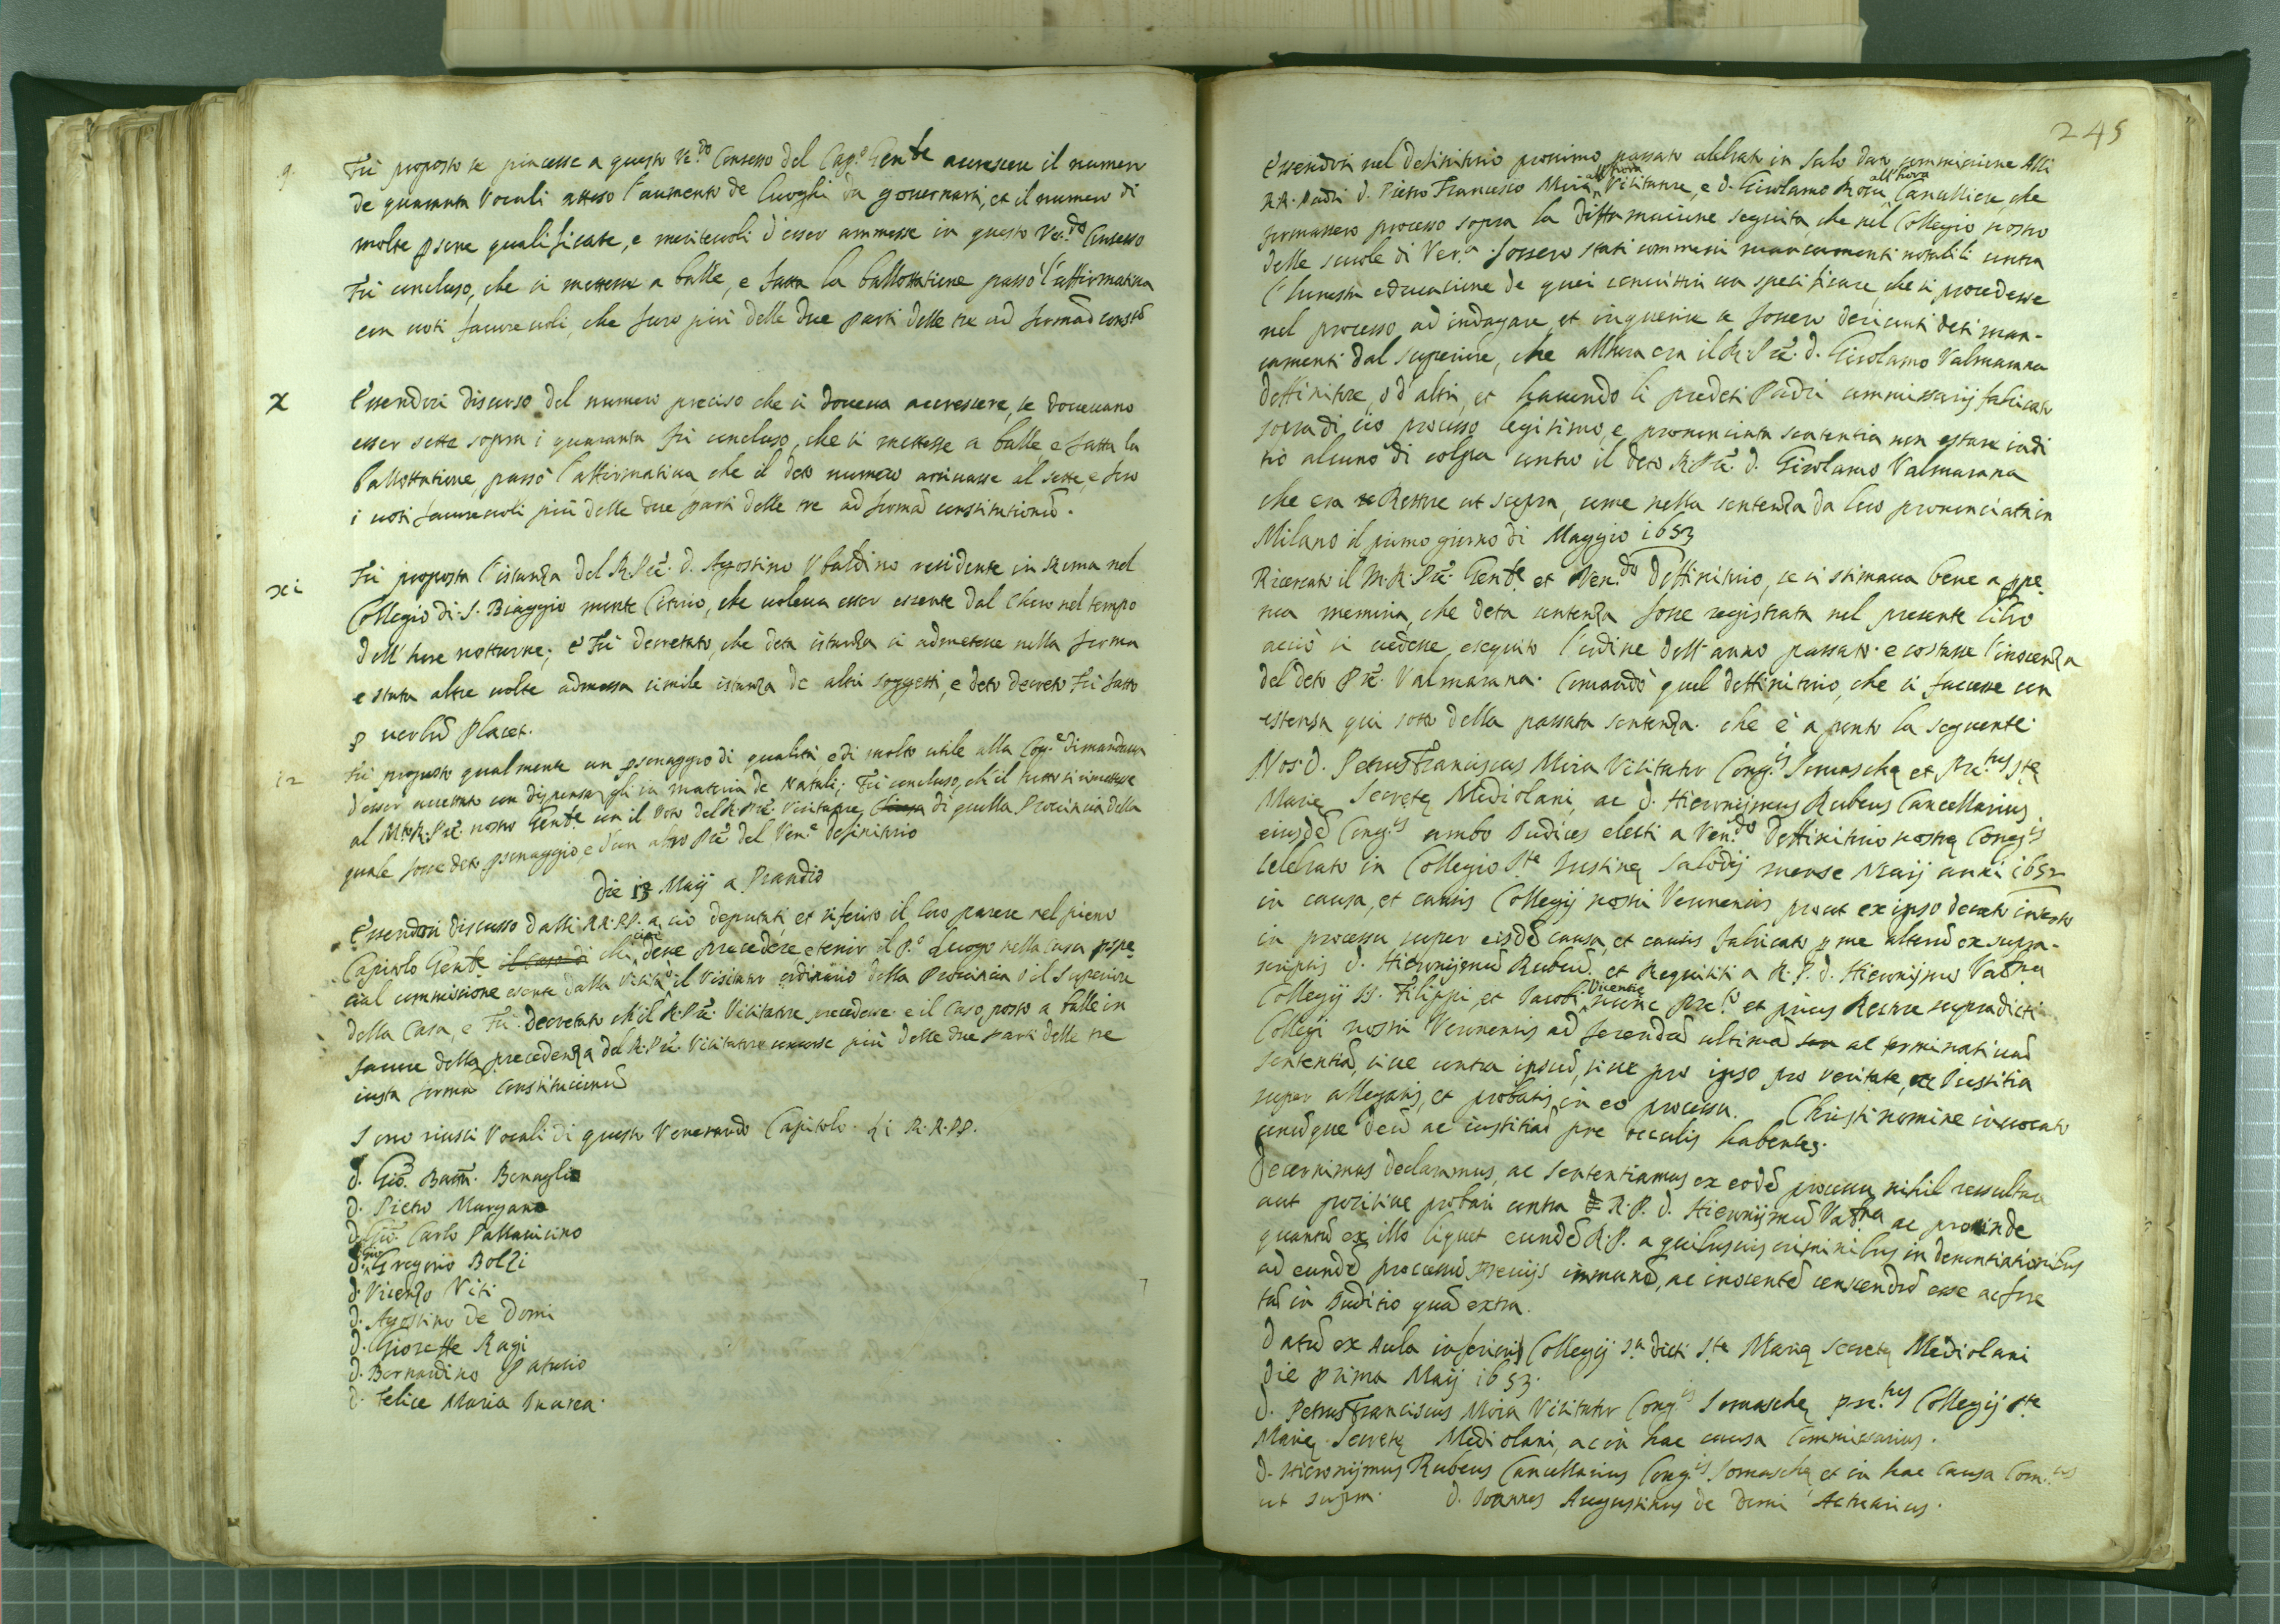 9. Fù proposto se piacesse a questo Ve.do Consesso del Cap.o Gen.le accrescere il numero
de quaranta Vocali atteso l'aumento de luoghi da governarsi, et il numero di
molte psone qualificate, e meritevoli d'esser ammesse in questo Ve.do Consesso
Fù concluso, che si mettesse a balle, e fatta la ballottatione passò l'affirmativa
con voti favorevoli, che furo più delle due parti delle tre ad formã
X Essendosi discorso del numero preciso che si doveva accrescere, se dovevano
esser sette sopra i quaranta fù concluso, che si mettesse a balle, e fatta la
ballottatione, passò l'affirmativa che il deto numero arrivasse al sette, e furo
i voti favorevoli più delle due parti delle tre ad formã constitutionũ.
xi Fù proposta l'istanza del R. Pre. d. Agostino Ubaldino residente in Roma nel
Collegio di S. Biaggio monte Citorio, che voleva esser essente dal Choro nel tempo
dell'hore notturne; e fù decretato, che deta istanza si admetesse nella forma
e stata altre volte admessa simile istanza de altri soggetti, e deto decreto fù fatto
p verbũ Placet.
12 Fù proposto qualmente un psonaggio di qualità, e di molto utile alla Cong.e dimandava
d'esser accettato con dispensargli in materia de Natali; Fù concluso, ch'il tutto si rimettesse
al M.to R. Pre. nostro Gen.le con il Voto del R. Pre. Visitatore, di quella Provincia della
quale fosse deto psonaggio, e d'un altro Pre del Ven.e Definitorio
Die 13 Maij a Prandio
Essendosi discusso dalli RR. PP. a ciò deputati, et riferito il loro parere nel pieno
Capitolo Gen.le il Caso di chi deve precedere e tenir il p.o Luogo nella Casa
commissione esente dalla Visita o il Visitator ordinario della Provincia o il Superiore
della Casa, e Fù decretato ch'il R. Pre. Visitatore precedesse. e il Caso, posto a balle in
favore della precedenza del R. Pre. Visitatore concorse più delle due parti delle tre
iusta formã Constitucionũ
Sono riusci Vocali di questo Venerando Capitolo. Li R.R. PP.
d. Gio. Batta. Benaglio
d. Pietro Morgano
d. Gio. Carlo Pallavicino
d. Gregorio Bolzi
d. Vicenzo Viti
d. Agostino de Domi
d. Gioseffe Ragi
d. Bernardino Patusio
d. Felice Maria
245
Essendosi nel definitorio prossimo passato celebrato in Salo data commissione Alli
RR. Padri d. Pietro Francesco Mira all'hora Visitatore, e d. Girolamo Rossi all'hora Cancelliere, che
formassero processo sopra la diffamacione seguita, che nel Collegio nostro
delle scuole di Ver.a fossero stati commessi mancamenti notabili contra
l'honesta educacione de quei convittori con specificare, che si procedesse
nel processo ad indagare, et inquerire se fossero derivanti deti man-
camenti dal superiore, che allhora era il R. Pre. d. Girolamo Valmarana
deffinitore, o d'altri, et havendo li predeti Padri commissarij fabricato
sovra di ciò processo legitimo, e pronunciata sententia non estare indi
tio alcuno di colpa contro il deto R. Pre. d. Girolamo Valmarana
che era Rettore ut supra, come nella sentenza da loro pronunciata in
Milano il primo giorno di Maggio 1653
Ricercato il M. R. Pre. Gen.le et Ven.do Deffinitorio, se si stimava bene a ppe
tua memoria, che deta sentenza fosse registrata nel presente libro
acciò si vedesse eseguito l'ordine dell'anno passato e costasse l'inocenza
del deto Pre. Valmarana. Comandò quel deffinitorio, che si facesse
estensa qui sotto della passata sentenza. che è a ponto la seguente.
Nos. d. Petrus Franciscus Mira Visitator Cong.is Somaschę et Pre.tus S.tę
Marię Secretę Mediolani, ac d. Hieronijmus Rubeus Cancellarius
eiusdẽ Cong.is ambo Judices electi a Ven.do Deffinitorio nostrę Cong.is
celebrato in Collegio S.te Justinę Salodij mense Maij anni 1652
in causa, et causis Collegij nostri Veronensis prout ex ipso decreto inserto
in processu super eisdẽ causa, et causis fabricato p me alterũ ex supra-
scriptis d. Hieronijmũ Rubeũ. et Requisiti a R. P. d. Hieronijmo Val.na
Collegij SS. Filippi, et Jacobi Vicentię nunc Pre.to et prius Rectore supradicti
Collegi nostri Veronensis ad ferendã ultimã ac terminativã
sententiã, sive contra ipsũ, sive pro ipso pro veritate, ac Justitia
super allegatis, et probatis in eo processu. Christi nomine invocato
deũ ac iustitiã pre occulis habentes.
Decernimus declaramus, ac sententiamus ex eodẽ processu nihil ressultare
aut positive probari contra R. P. d. Hieronijmũ Val.na ac proinde
quantũ ex illo liquet eundẽ R. P. a quibusvis criminibus in denontiationibus
ad eundẽ processũ previjs immunẽ, ac inocentẽ censendũ esse ac fore
tã in Juditio quã extra.
Datũ ex Aula inferiori Collegij S.a dicti S.te Marię Secretę Mediolani
die prima Maij 1653.
d. Petrus Franciscus Mira Visitator Cong.is Somaschę pre.tus Collegij S.tę
Marię Secretę Mediolani, ac in hac causa Commissarius.
d. Hieronijmus Rubeus Cancellarius Cong.is Somaschę et in hac Causa Com.us
ut supra. d. Joannes Augustinus de Domi Actuarius.